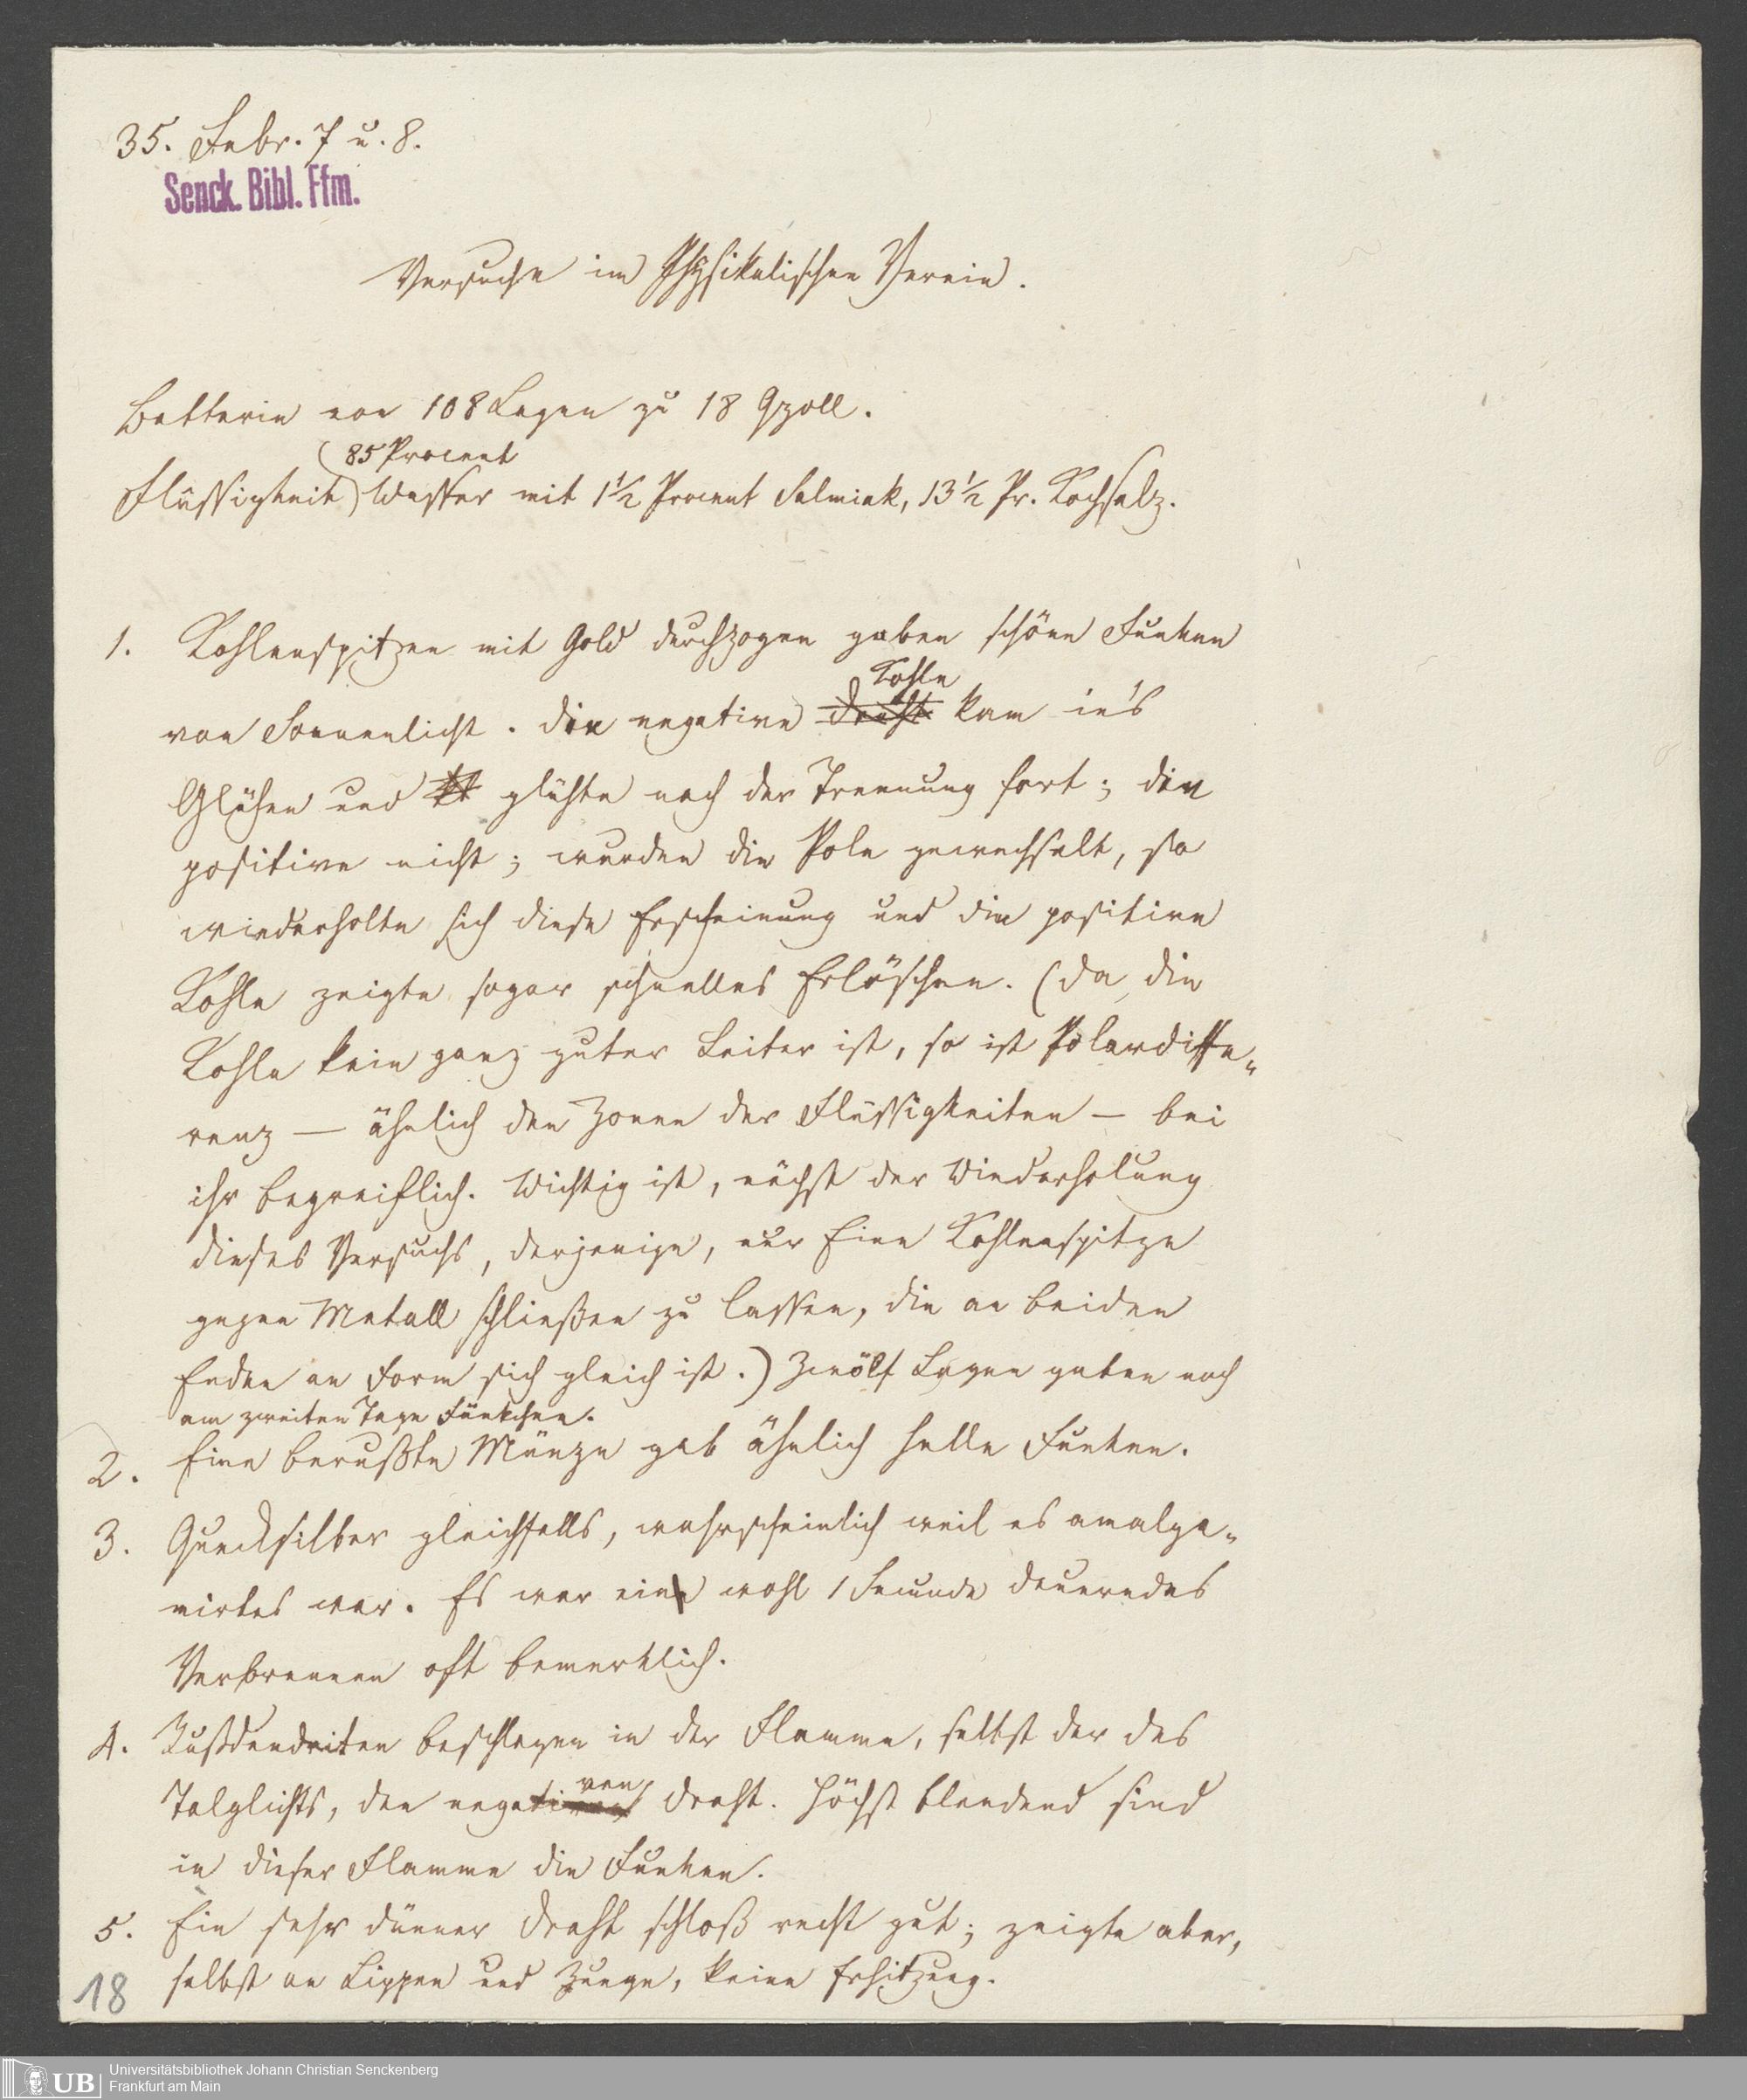 35. Febr. 7 u. 8.
Senck. Bibl. Ffm.
Versuche im Physikalischen Verein.
Batterie von 108 Lagen zu 18 Qzoll.
(85 Procent
Flüssigkeit) Wasser mit 1½ Procent Salmiak, 13½ Pr. Kochsalz.
1. Kohlenspitzen mit Gold durchzogen gaben schöne Funken
Kohle
von Sonnenlicht. Die negative Draht kam in's
Glühen und glühte nach der Trennung fort; die
positive nicht; wurden die Pole gewechselt, so
wiederholte sich diese Erscheinung und die positive
Kohle zeigte sogar schnelles Erlöschen. (Da die
Kohle kein ganz guter Leiter ist, so ist Polardiffe-
renz — ähnlich den Zonen der Flüssigkeiten — bei
ihr begreiflich. Wichtig ist, nächst der Wiederholung
dieses Versuchs, derjenige, nur Eine Kohlenspitze
gegen Metall schließen zu lassen, die an beiden
Enden an Form sich gleich ist.) Zwölf Lagen gaben noch
am zweiten Tage Fünkchen.
2. Eine berußte Münze gab ähnlich helle Funken.
3. Quecksilber gleichfalls, wahrscheinlich weil es amalga-
mirtes war. Es war ein wohl 1 Secunde dauerndes
Verbrennen oft bemerklich.
4. Rußdendriten beschlagen in der Flamme, selbst der des
ven
Talglichts, den negati Draht. Höchst blendend sind
in dieser Flamme die Funken.
5. Ein sehr dünner Draht schloß recht gut; zeigte aber,
selbst an Lippen und Zunge, keine Erhitzung.
18
UB Universitätsbibliothek Johann Christian Senckenberg
Frankfurt am Main